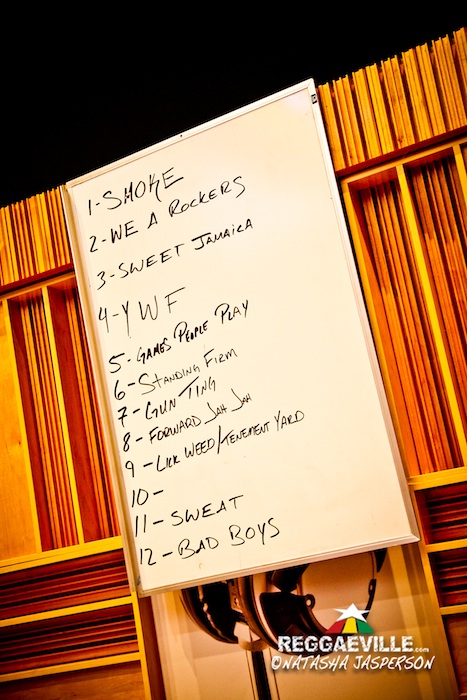 1-SMOKE
2-WE A ROCKERS
3-SWEET JAMAICA
4-YWF
5-GAMES PEOPLE PLAY
6-STANDING FIRM
7-GUN TING
8-FORWARD JAH JAH
9-LICK WEED/TENEMENT YARD
10-
11-SWEAT
12-BAD BOYS
REGGAEVILLE.com
©NATASHA JASPERSON